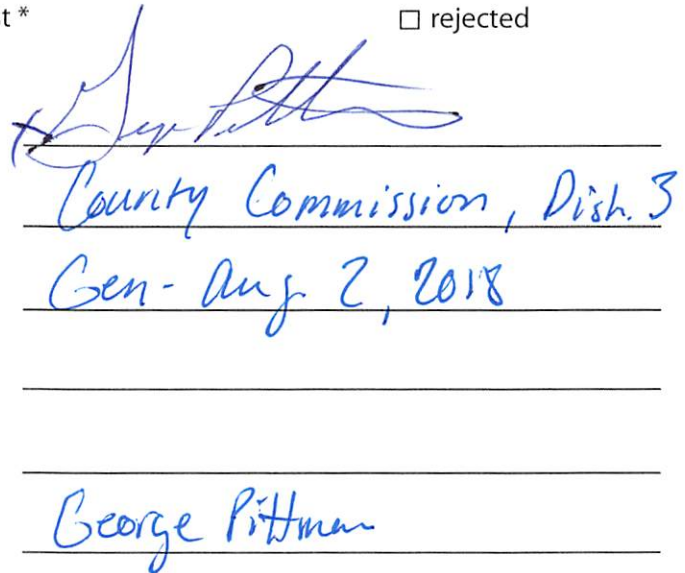 t *
☐ rejected
County Commission, Dist. 3
Gen- Aug 2, 2018
George Pittman